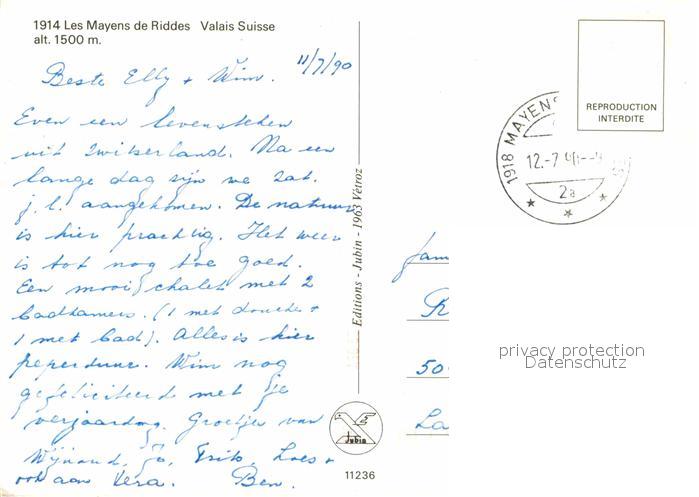 1914 Les Mayens de Riddes Valais Suisse
alt. 1500 m.
11/7/90
Beste Elly + Wim.
Even een levensteken
uit Zwitserland. Na een
lange dag zijn we zat.
j.l. aangekomen. De natuur
is hier prachtig. Het weer
is tot nog toe goed.
Een mooi chalet met 2
badkamers. (1 met douche +
1 met bad). Alles is hier
peperduur. Wim nog
gefeliciteerd met je
verjaardag. Groetjes van
Wijnand, Jo, Frits, Loes +
ook aan Vera. Ben.
Editions - Jubin - 1963 Vétroz
Jubin
11236
REPRODUCTION
INTERDITE
1918 MAYENS
12.-7.90--
2a
fam
R
50
La
privacy protection
Datenschutz